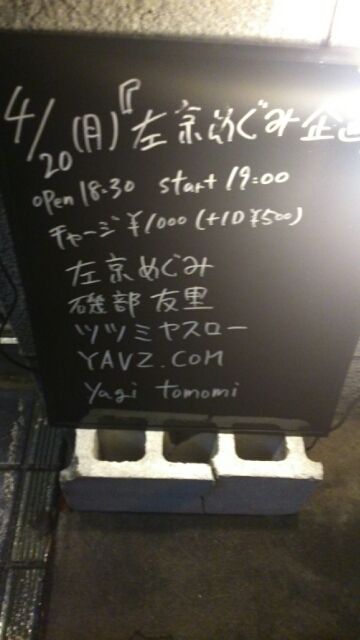 4/20(月)『左京めぐみ企画
open 18:30 start 19:00
チャージ ¥1000 (+1D ¥500)
左京めぐみ
磯部友里
ツツミヤスロー
YAVZ.COM
Yagi tomomi